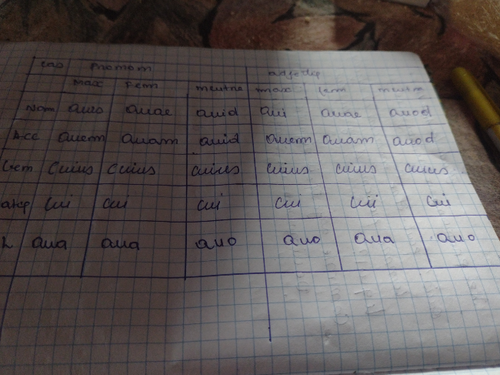 cas Pronom adjectif
masc Fem neutre masc fem neutre
Nom quis quae quid qui quae quod
Acc quem quam quid quem quam quod
Gem cuius cuius cuius cuius cuius cuius
cui cui cui cui cui cui
qua qua quo quo qua quo